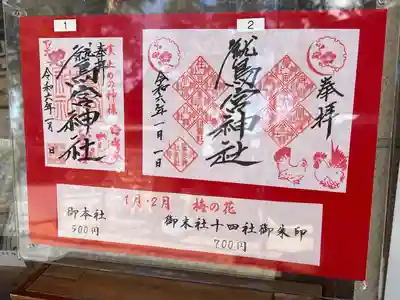 1
2
奉拝
鷲宮神社
令和六年一月 日
奉拝
鷲宮神社
令和六年一月一日
1月・2月 梅の花
御本社
500円
御末社十四社御朱印
700円